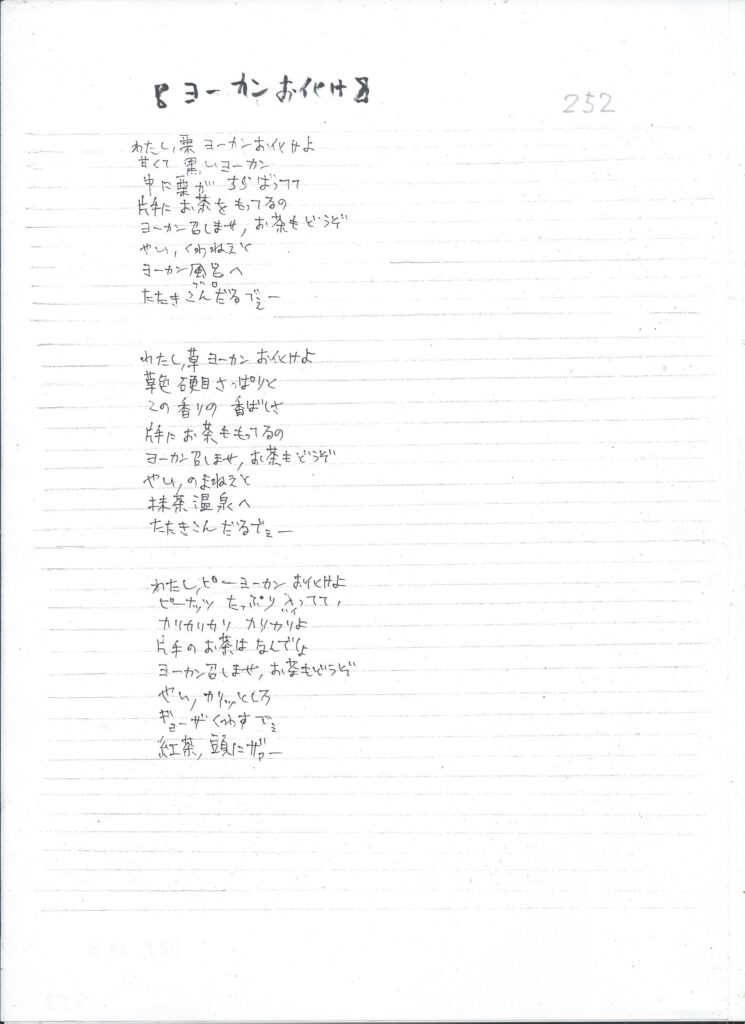 『ヨーカンお化け』
252
わたし,栗ヨーカンお化けよ
甘くて黒いヨーカン
中に栗がちらばってて
片手にお茶をもってるの
ヨーカン召しませ,お茶もどうぞ
やい,くわねえと
ヨーカン風呂へ
ブロ
たたきこんだるでぇー
わたし,草ヨーカンお化けよ
草色硬目さっぱりと
この香りの香ばしさ
片手にお茶ももってるの
ヨーカン召しませ,お茶もどうぞ
やい,のまねえと
抹茶温泉へ
たたきこんだるでぇー
わたし,ピーヨーカンお化けよ
ピーナッツたっぷり入ってて,
ハイ
カリカリカリカリカリよ
片手のお茶はなんでしょ
ヨーカン召しませ,お茶もどうぞ
やい,カリッとしろ
ギョーザくわすでぇ
紅茶,頭にザァー